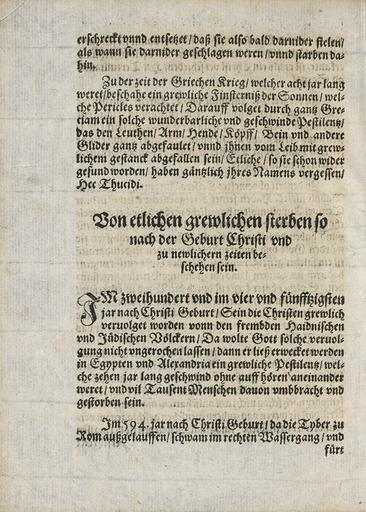 erschreckt vnnd entsetzet / daß sie also bald darnider fielen /
als wann sie darnider geschlagen weren / vnnd starben da-
hin.
Zu der zeit der Griechen Krieg / welcher acht jar lang
weret / beschahe ein grewliche Finsterniß der Sonnen / wel-
che Pericles verachtet / Darauff volget durch gantz Gre-
ciam ein solche wunderbarliche vnd geschwinde Pestilentz /
das den Leuthen / Arm / Hende / Köpff / Bein vnd andere
Glider gantz abgefaulet / vnnd jhnen vom Leib mit grew-
lichem gestanck abgefallen sein / Etliche / so sie schon wider
gesund worden / haben gäntzlich jhres Namens vergessen /
Hec Thucidi.
Von etlichen grewlichen sterben so
nach der Geburt Christi vnd
zu newlichern zeiten be-
schehen sein.
IM zweihundert vnd im vier vnd fünfftzigsten
jar nach Christi Geburt / Sein die Christen grewlich
vervolget worden vonn den frembden Haidnischen
vnd Jüdischen Völckern / Da wolte Gott solche vervol-
gung nicht vngerochen lassen / dann er ließ erwecket werden
in Egypten vnd Alexandria ein grewliche Pestilentz / wel-
che zehen jar lang geschwind ohne auff hören aneinander
weret / vnd vil Tausent Menschen dauon vmbbracht vnd
gestorben sein.
Im 594. jar nach Christi Geburt / da die Tyber zu
Rom außgelauffen / schwam im rechten Wassergang / vnd
fürt